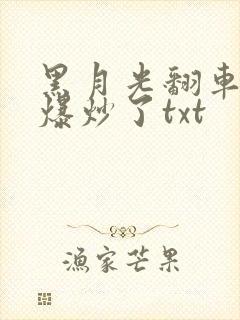 黑月光翻车
爆炒了txt
渔家芒果